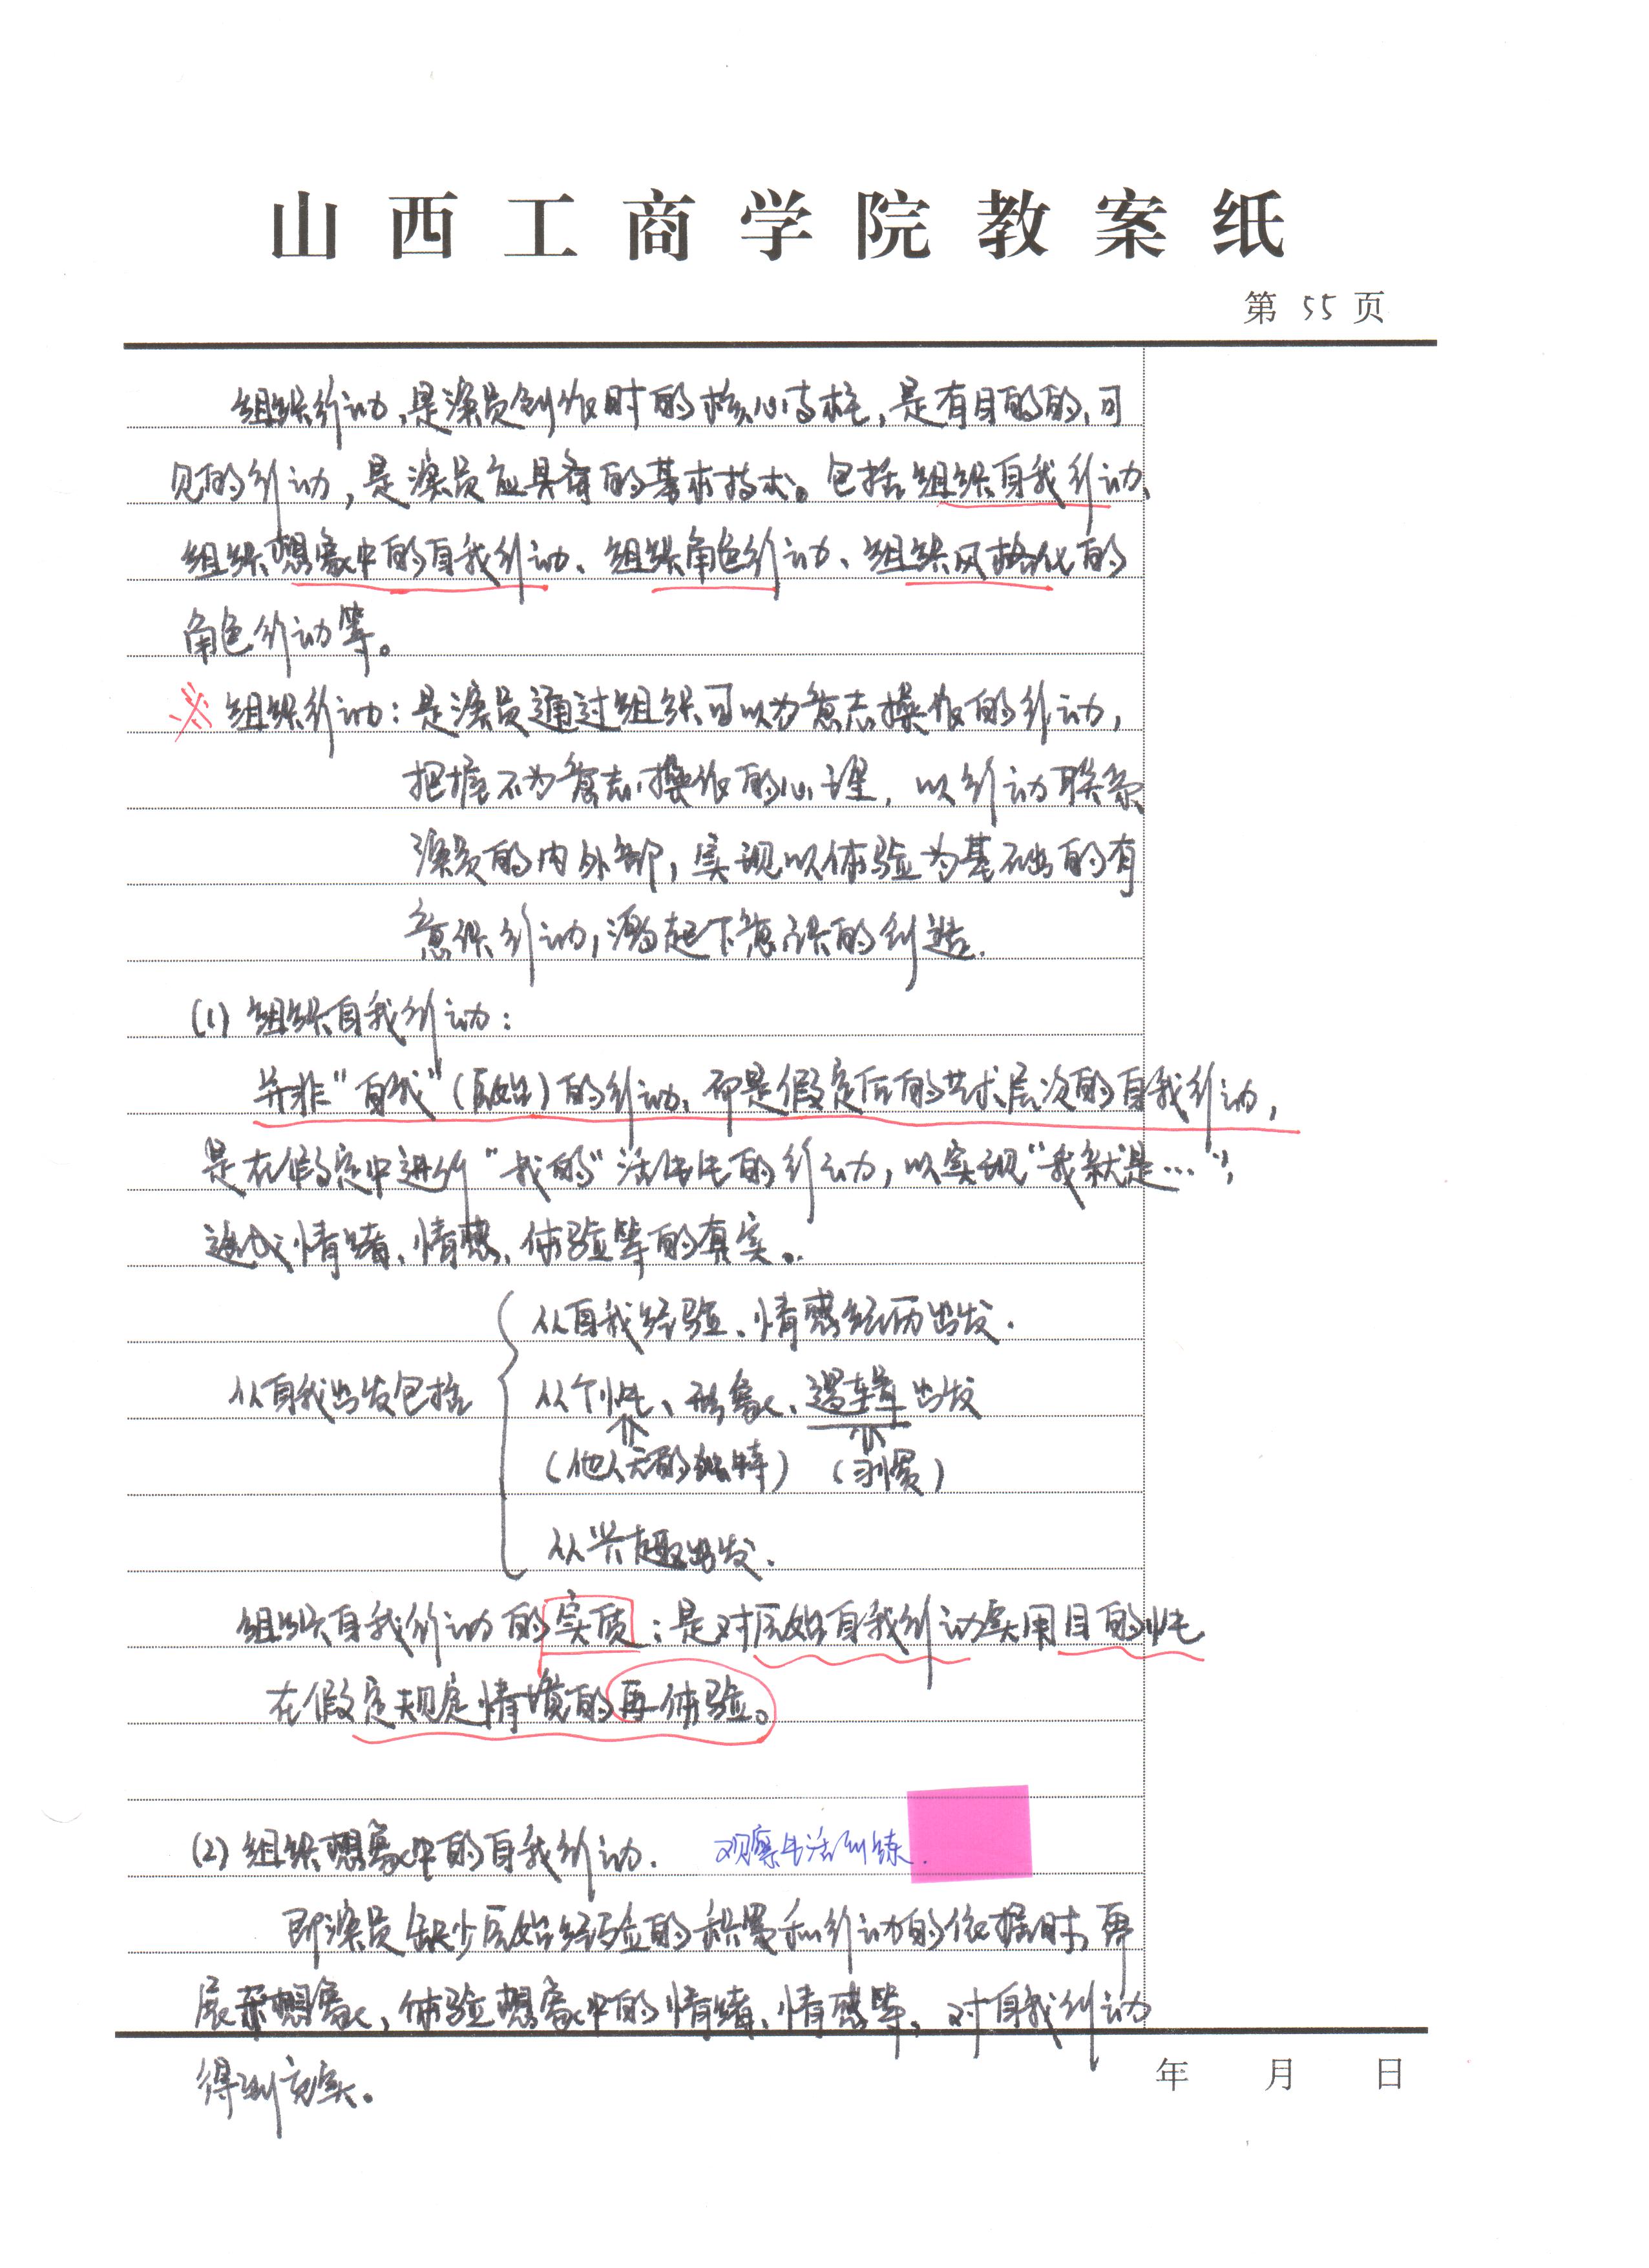 山西工商学院教案纸
第 55 页
组织行动,是演员创作时的核心支柱,是有目的的、可
见的行动,是演员应具备的基本技术。包括组织自我行动、
组织想象中的自我行动、组织角色行动、组织风格化的
角色行动等。
※ 组织行动:是演员通过组织可以为意志操作的行动,
把握不为意志操作的心理,以行动联系
演员的内外部,实现以体验为基础的有
意识行动,激起下意识的创造.
(1) 组织自我行动:
并非“自我”(原始)的行动、而是假定后的艺术层次的自我行动,
是在假定中进行“我的”活生生的行动,以实现“我就是…”,
达成情绪、情感、体验等的真实。
从自我经验、情感经历出发.
从自我出发包括
从个性、形象、逻辑出发
(他人无的独特) (习惯)
从兴趣出发.
组织自我行动的实质:是对原始自我行动实用目的性
在假定规定情境的再体验。
(2) 组织想象中的自我行动. 观察生活训练.
即演员缺少原始经验的积累和行动的依据时,再
展开想象,体验想象中的情绪、情感等,对自我行动
得到充实。
年 月 日